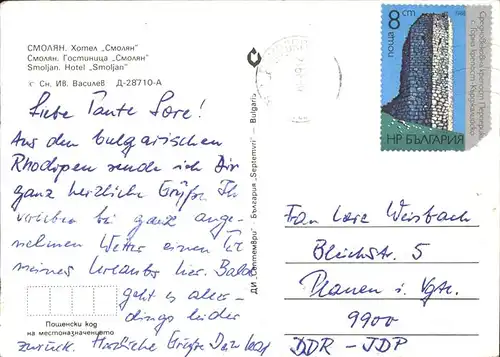 СМОЛЯН. Хотел „Смолян"
Смолян. Гостиница „Смолян"
Smoljan. Hotel „Smoljan"
© Сн. Ив. Василев Д-28710-А
Liebe Tante Lore!
Aus den bulgarischen
Rhodopen sende ich Dir
ganz herzliche Grüße. Ich
verleben bei ganz ange-
nehmen Wetter einen Teil
meines Urlaubes hier. Bald
geht es aller-
dings leider
zurück. Herzliche Grüße Dein
Пощенски код
на местоназначението
ДИ „Септември" България „Septemvri" — Bulgaria
8 ст
поща
1988
НР БЪЛГАРИЯ
Средновековни крепости Перперикон
Frau Lore Weisbach
Bleichstr. 5
Plauen i. Vgtl.
9900
DDR - JDP